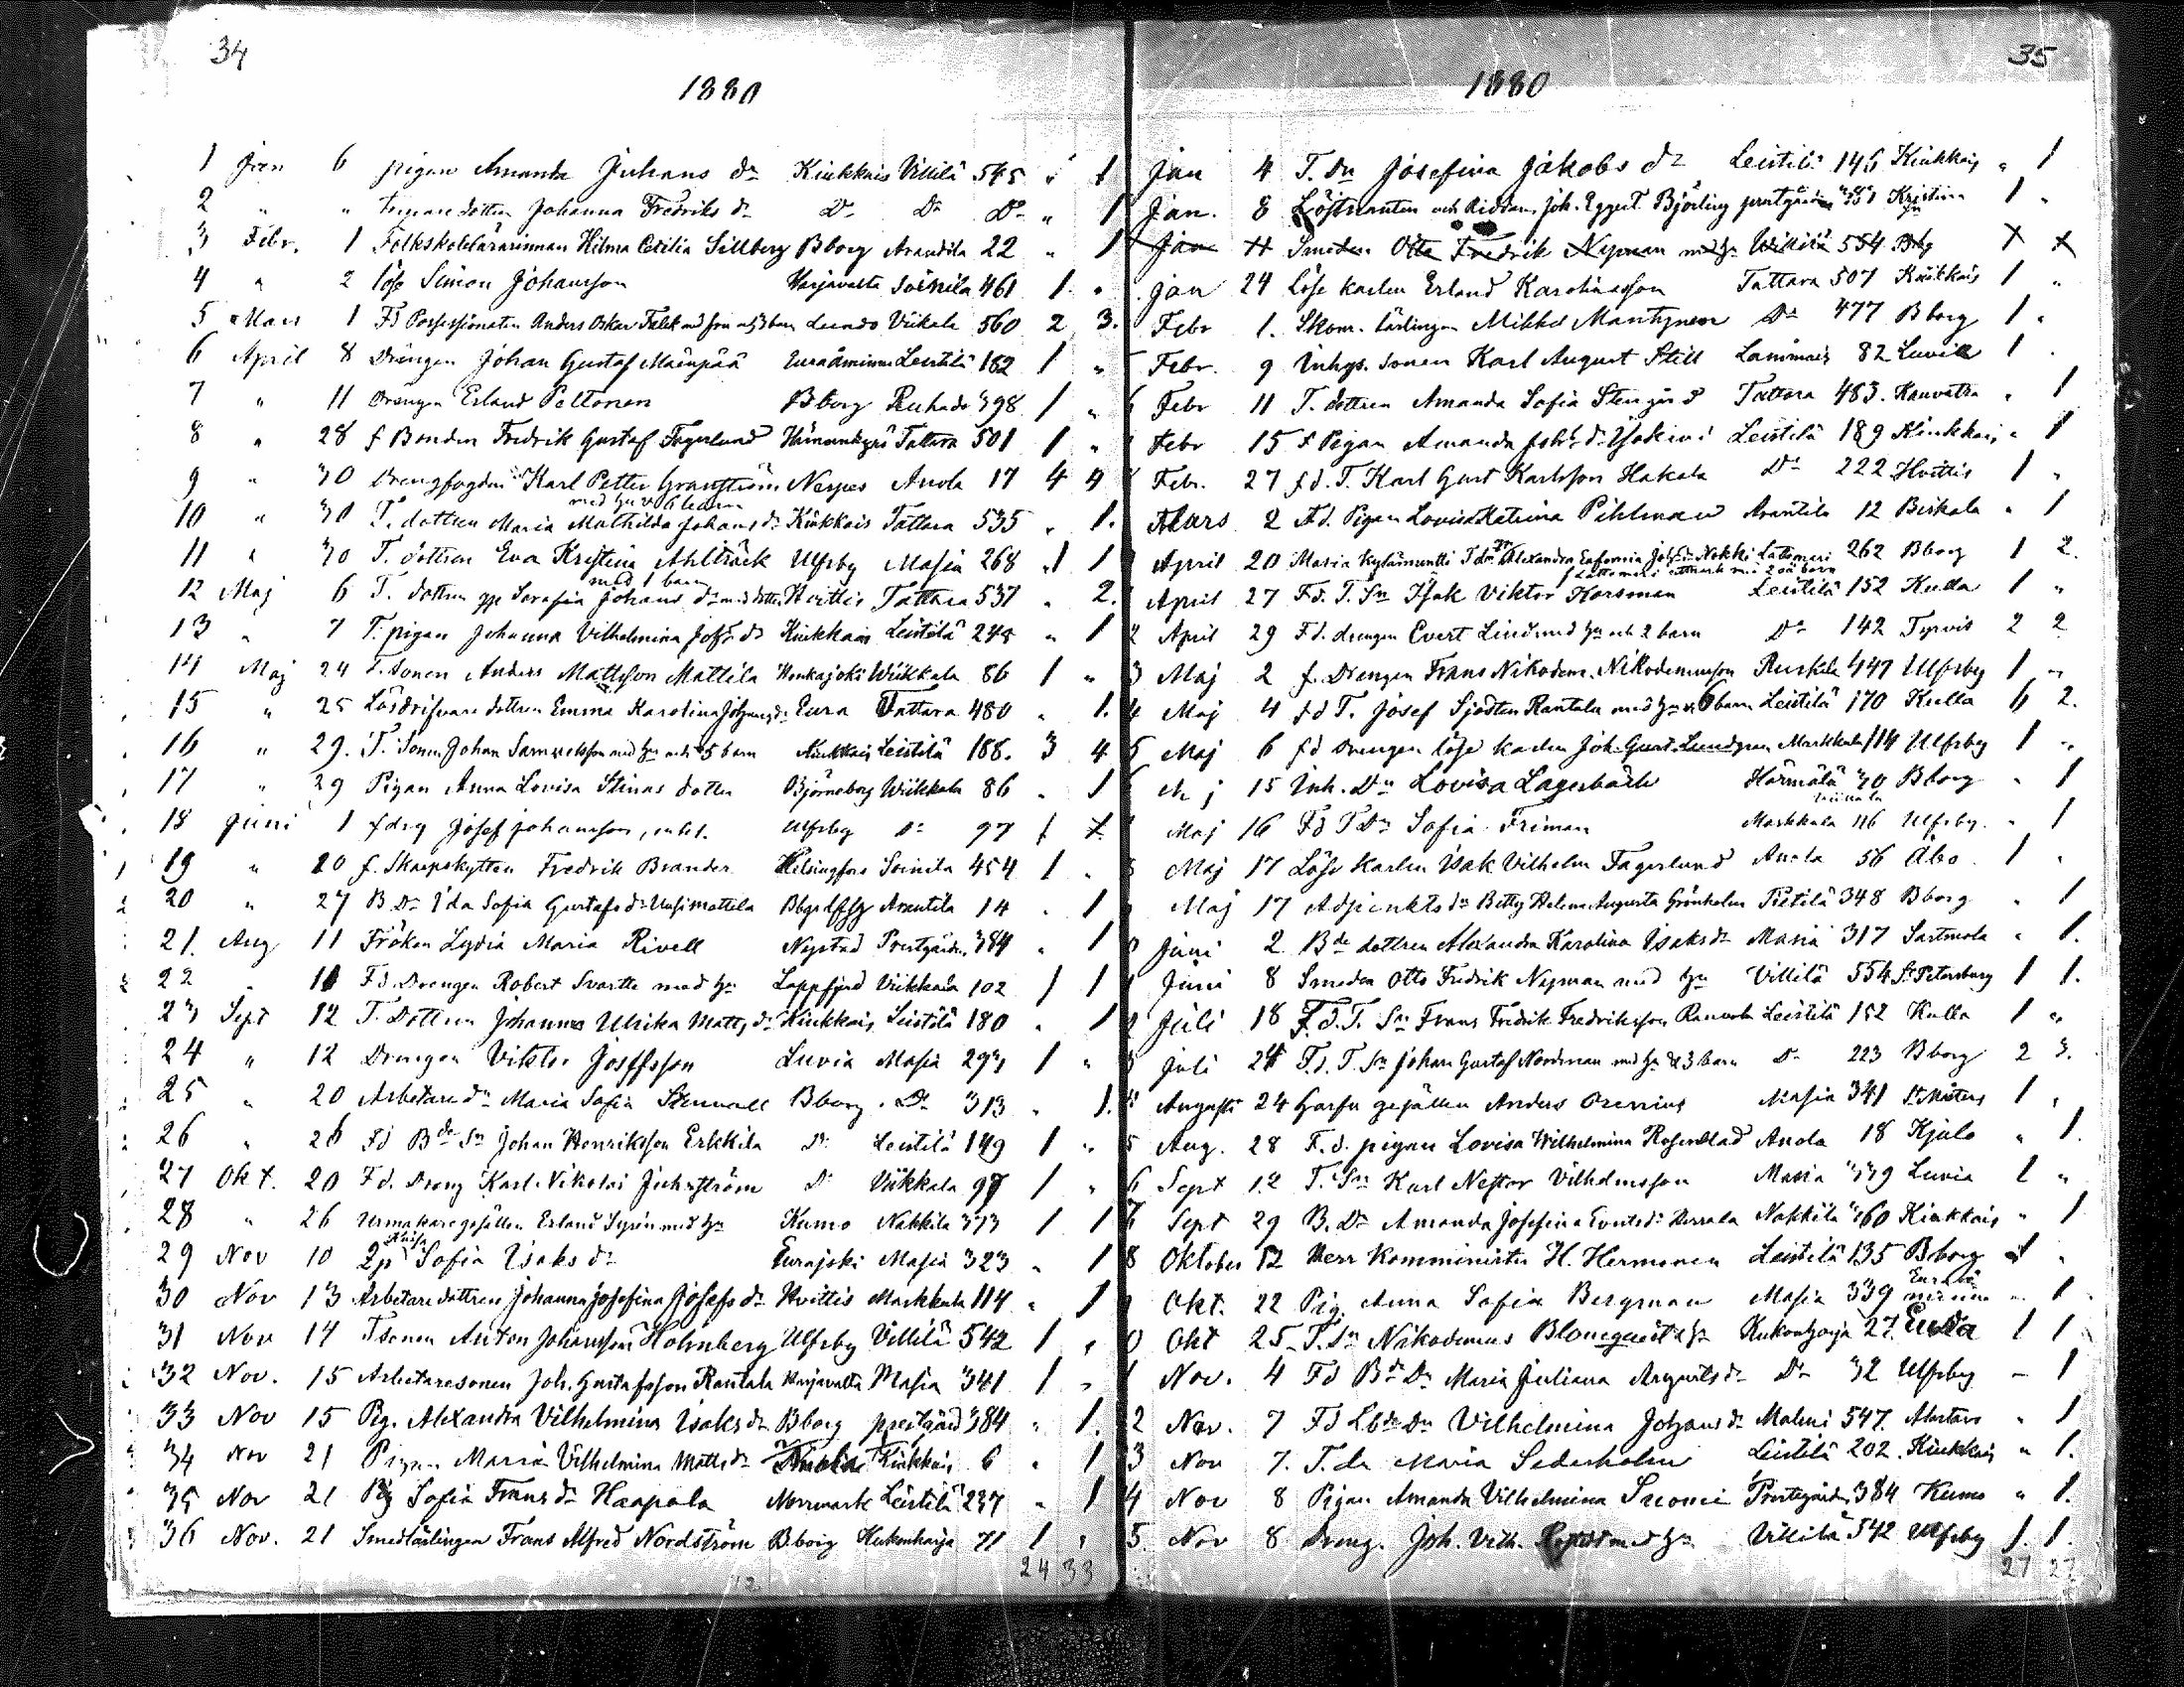 34
1880
1 Jan 6 pigan Amanda Juhans dr Kiukkais Villilä 545 " 1
2 " " dottren Johanna Fredriks dr Do Do Do " 1
3 Febr. 1 Folkskolelärarinnan Hilma Cecilia Sillberg Bborg Anola 22 " 1
4 " 2 löse Simon Johansson Harjavalta Soinila 461 1 "
5 Mars 1 Fd Possessionaten Anders Oskar Falck med fru och barn Viikala 560 2 3.
6 April 8 Drängen Johan Gustaf Mäenpää Euraåminne Leistilä 162 1 "
7 " 11 Drängen Erland Peltonen Bborg Ruhade 398 1 "
8 " 28 f Bonden Fredrik Gustaf Fagerlund Tattara 501 1 "
9 " 30 Drengfogden Karl Petter Granström Nerpes Anola 17 4 4
med hu o 6 barn
10 " 30 T. dottren Maria Mathilda Johans dr Kiukkais Tattara 535 " 1.
11 " 30 T. dottren Eva Kristina Ahlbäck Ulfsby Masia 268 " 1
med 1 barn
12 Maj 6 T. dottren Serafia Johans dr med dotter Hvittis Tattara 537 " 2.
13 " 7 T. pigan Johanna Vilhelmina Johs dr Kiukkais Leistilä 248 " 1
14 Maj 24 T. sonen Anders Mattsson Mattila Honkajoki Wiikkala 86 1 "
15 " 25 Lösdrifvare dottren Emma Karolina Johans dr Eura Tattara 480 " 1.
16 " 29. T. Sonen Johan Samuelsson med hu och 5 barn Kiukkais Leistilä 188. 3 4
17 " 29 Pigan Anna Lovisa Stinas dotter Björneborg Wiikkala 86 " 1
18 Juni 1 f drg Josef Johansson, inhl. Ulfsby Do 97 1 1
19 " 20 f. Skarpskytten Fredrik Brander Helsingfors Soinila 454 1 "
20 " 27 B. Dr Ida Sofia Gustafs dr Uusimattila Anantila 14 " 1
21. Aug 11 Fröken Lydia Maria Rivell Nystad Prestgårdn. 384 " 1
22 " 11 Fd. Drengen Robert Svartte med hu Lappfjerd Viikkala 102 1 1
23 Sept 12 T. Dottren Johanna Ulrika Matts dr Kiukkais Leistilä 180 " 1
24 " 12 Drengen Viktor Joseffsson Luvia Masia 293 1 "
25 " 20 Arbetare dr Maria Sofia Stenvall Bborg. Do 313 " 1.
26 " 26 Fd Bde Sn Johan Henriksson Erkkila Do Leistilä 149 1 "
27 Okt. 20 Fd. Dreng Karl Nikolai Juhnström Do Viikkala 97 1 "
28 " 26 Urmakaregesällen Erland Syrén med hu Kumo Nakkila 373 1 1
29 Nov 10 Sofia Isaks dr Eurajoki Masia 323 " 1
30 Nov 13 Arbetare dottren Johanna Josefina Josefs dr Hvittis Markkula 114 " 1
31 Nov 14 Tsonen Anton Johansson Holmberg Ulfsby Villilä 542 1 "
32 Nov. 15 Arbetaresonen Joh. Gustafsson Rantala Harjavalta Masia 341 1 "
33 Nov 15 Pig. Alexandra Vilhelmina Isaks dr Bborg prestgård 384 " 1.
34 Nov 21 Pigan Maria Vilhelmina Matts dr Kiukkais 6 " 1
35 Nov 21 Pig Sofia Frans dr Haapala Norrmark Leistilä 237 " 1
36 Nov. 21 Smedlärlingen Frans Alfred Nordström Bborg Kukonharja 71 1 "
24 33
35
1880
Jan 4 T. dn Josefina Jakobs dr Leistilä 145 Kiukkais " 1
Jan. 8 Löjtnanten och Riddaren Joh. Eggert Björling prestgården Kristina 1 "
Jan 11 Smeden Otto Fredrik Nyman med hu Villilä 554 Bbg
Jan 24 Löse karlen Erland Karolinasson Tattara 507 Kiukkais 1 "
Febr 1. Skom. lärlingen Mikkel Mantynen Do 477 Bborg 1 "
Febr. 9 Inhys. sonen Karl August Still Lammais 82 Luvia 1 .
Febr 11 T. dottren Amanda Sofia Stengård Tattara 483. Kauvatsa " 1
Febr 15 f Pigan Amanda Johs dr Leistilä 189 Kiukkais " 1
Febr. 27 f d. T. Karl Gust Karlsson Hakala Do 222 Hvittis 1 "
Mars 2 Fd. Pigan Lovisa Katrina Pihlman Anantila 12 Birkala " 1
April 20 Maria Kylänmuntti T dr Alexandra Eufrosina Johs dr Nokki Lattomeri 262 Bborg 1 2.
April 27 Fd. T. Sn Isak Viktor Korsman Leistilä 152 Kulla 1 "
April 29 Fd. drengen Evert Lind med hu och 2 barn Do 142 Tyrvis 2 2
Maj 2 f. Drengen Frans Nikodem. Nikodemusson Ruskila 447 Ulfsby 1 "
Maj 4 f d T. Josef Sjösten Rantala med hu o 6 barn Leistilä 170 Kulla 6 2.
Maj 6 fd drengen löse karlen Joh. Gust. Lundgren Markkula 114 Ulfsby 1 "
Maj 15 Inh. Dn Lovisa Lagerbäck Hormälä 30 Bborg " 1
Viikkala
Maj 16 Fd T Dn Sofia Friman Markkula 116 Ulfsby. " 1
Maj 17 Löse Karlen Isak Vilhelm Fagerlund Anola 56 Åbo 1 "
Maj 17 Adjunkts dr Betty Helena Augusta Grönholm Pietilä 348 Bborg " 1
Juni 2 Bde dottren Alexandra Karolina Isaks dr Masia 317 Sastmola " 1.
Juni 8 Smeden Otto Fredrik Nyman med hu Villilä 554 St. Petersburg 1 1.
Juli 18 f. d. T. Sn Frans Fredrik Fredriksson Leistilä 152 Kulla 1 "
Juli 24 F. d. T. Sn Johan Gustaf Nordman med hu & 3 barn Do 223 Bborg 2 3.
Augusti 24 Garfv. gesällen Anders Orenius Masia 341 St. Mårtens 1 "
Aug. 28 F. d. pigan Lovisa Wilhelmina Rosenblad Anola 18 Kjulo " 1.
Sept 12 T. Sn Karl Nestor Vilhelmsson Masia 339 Luvia 1 "
Sept 29 B. Dr Amanda Josefina Everts dr Nakkila 360 Kiukkais " 1
8 Oktober 12 Herr Komminister H. Hermonen Leistilä 135 Bborg 1 "
Okt. 22 Pig. Anna Sofia Bergman Masia 339 Euraåminne " 1
0 Okt 25 T. Sn Nikodemus Blomqvist & hu Kukonharja 27. Eura 1 1
1 Nov. 4 Fd Bde Dn Maria Juliana Augusts dr Do 32 Ulfsby - 1
2 Nov. 7 Fd Lbde Dn Vilhelmina Johans dr Malmi 547. Alastaro " 1
3 Nov 7. T. dr Maria Sederholm Leistilä 202. Kiukkais " 1.
4 Nov 8 Pigan Amanda Vilhelmina Suomi Prestgården 384 Kumo " 1.
5 Nov 8 Dreng. Joh. Vilh. med hu Villilä 542 Ulfsby 1. 1.
27 27